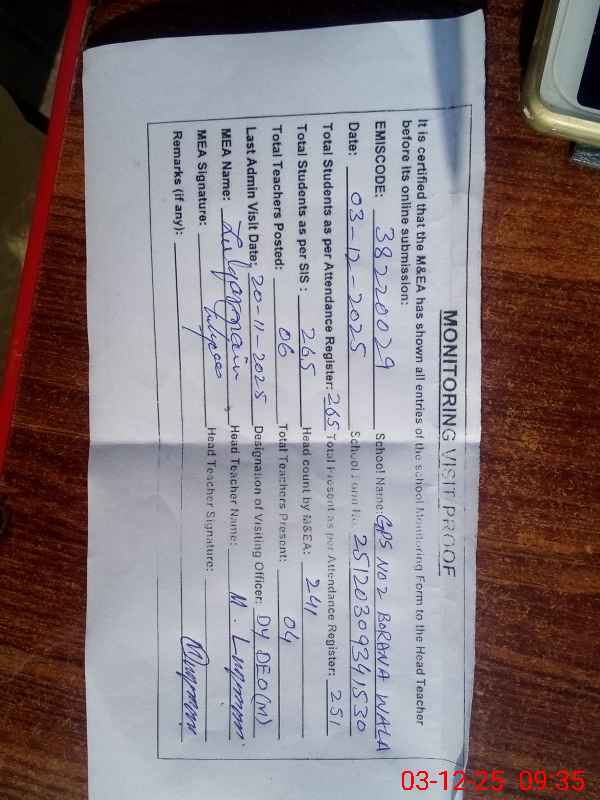 MONITORING VISIT PROOF
It is certified that the M&EA has shown all entries of the school Monitoring Form to the Head Teacher
before its online submission:
EMISCODE: 38220029 School Name: GPS NO 2 BORANA WALA
Date: 03-12-2025 School Form No. 25120309341530
Total Students as per Attendance Register: 265 Total Present as per Attendance Register: 251
Total Students as per SIS : 265 Head count by M&EA: 241
Total Teachers Posted: 06 Total Teachers Present: 04
Last Admin Visit Date: 20-11-2025 Designation of Visiting Officer: Dy DEO (M)
MEA Name: Head Teacher Name: M.
MEA Signature: Head Teacher Signature:
Remarks (if any):
03-12-25 09:35